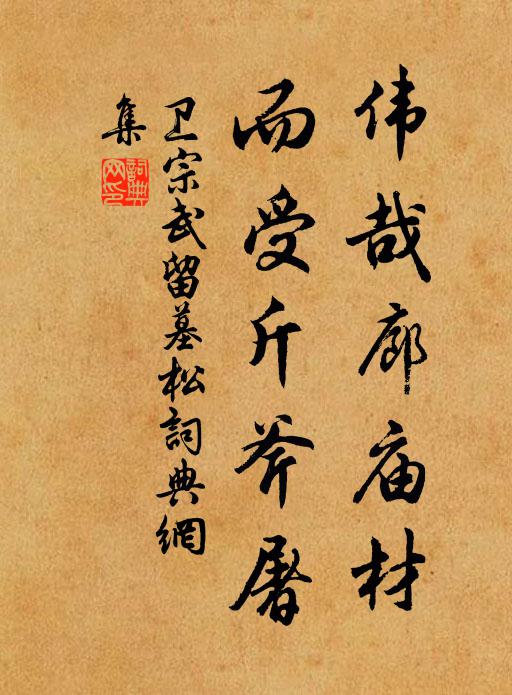 伟哉廊庙材
而受斤斧屠
卫宗武留墓松詞典網
集
詞典
网印